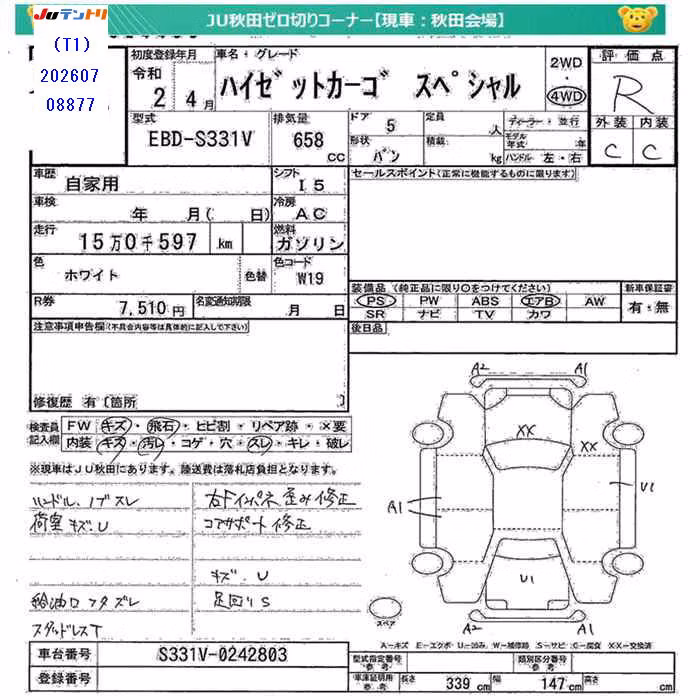 JUテントリ
JU秋田ゼロ切りコーナー【現車：秋田会場】
(T1)
202607
08877
初度登録年月
令和
2 4月
車名・グレード
ハイゼットカーゴ スペシャル
2WD
・
4WD
評価点
R
外装 内装
C C
型式
EBD-S331V
排気量
658
CC
ドア 5
形状 バン
定員 人
積載 kg
ディーラー・並行
モデル年式 年
ハンドル 左・右
車歴
自家用
シフト
I5
セールスポイント(正常に機能するものに限ります)
車検
年 月( 日)
冷房
AC
走行
15万0千597 km
燃料
ガソリン
色
ホワイト
色替
色コード
W19
装備品 (純正品に限り○をつけてください)
新車保証書
PS PW ABS エアB AW
有・無
SR ナビ TV カワ
R券
7,510円
名変通知期限
月 日
後日品
注意事項申告欄(不具合内容等は具体的に記入して下さい)
修復歴 有 〔箇所 〕
検査員記入欄
FW キズ・飛石・ヒビ割・リペア跡・×要
内装 キズ・汚レ・コゲ・穴・スレ・キレ・破レ
※現車はJU秋田にあります。陸送費は落札店負担となります。
ハンドル、ノブスレ
荷室キズ、U
給油口フタズレ
スタッドレスT
右Fインパネ歪み修正
コアサポート修正
キズ、U
足回りS
A2 A1
XX
XX
A1
U1
U1
A2 A1
スペア
A-キズ E-エクボ U-凹み W-補修跡 S-サビ C-腐食 XX-交換済
車台番号
S331V-0242803
登録番号
型式指定番号 参考
類別区分番号 参考
車庫証明用 参考
長さ 339 cm
幅 147 cm
高さ cm